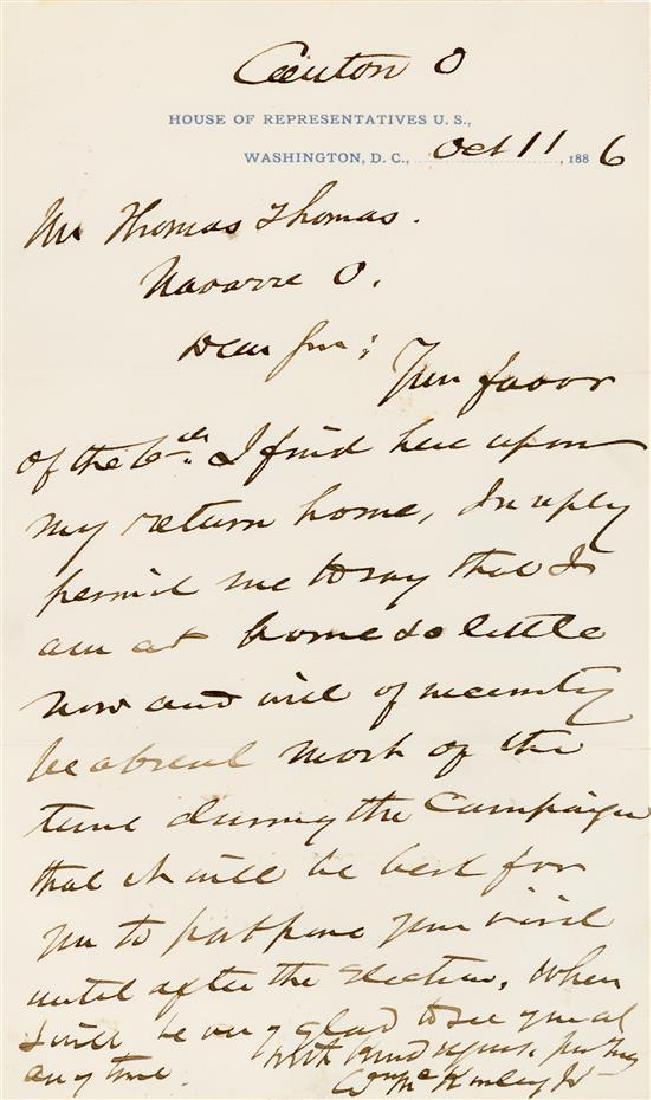 Canton O
HOUSE OF REPRESENTATIVES U. S.,
WASHINGTON, D. C., Oct 11, 1886
Mr Thomas Thomas.
Navarre O.
Dear Sir;
Your favor
of the 6th. I find here upon
my return home, In reply
permit me to say that I
am at home so little
now and will of necessity
be absent most of the
time during the Campaign
that it will be best for
you to postpone your visit
until after the Election, When
I will be very glad to see you at
any time.
With kind regards,
Wm McKinley Jr